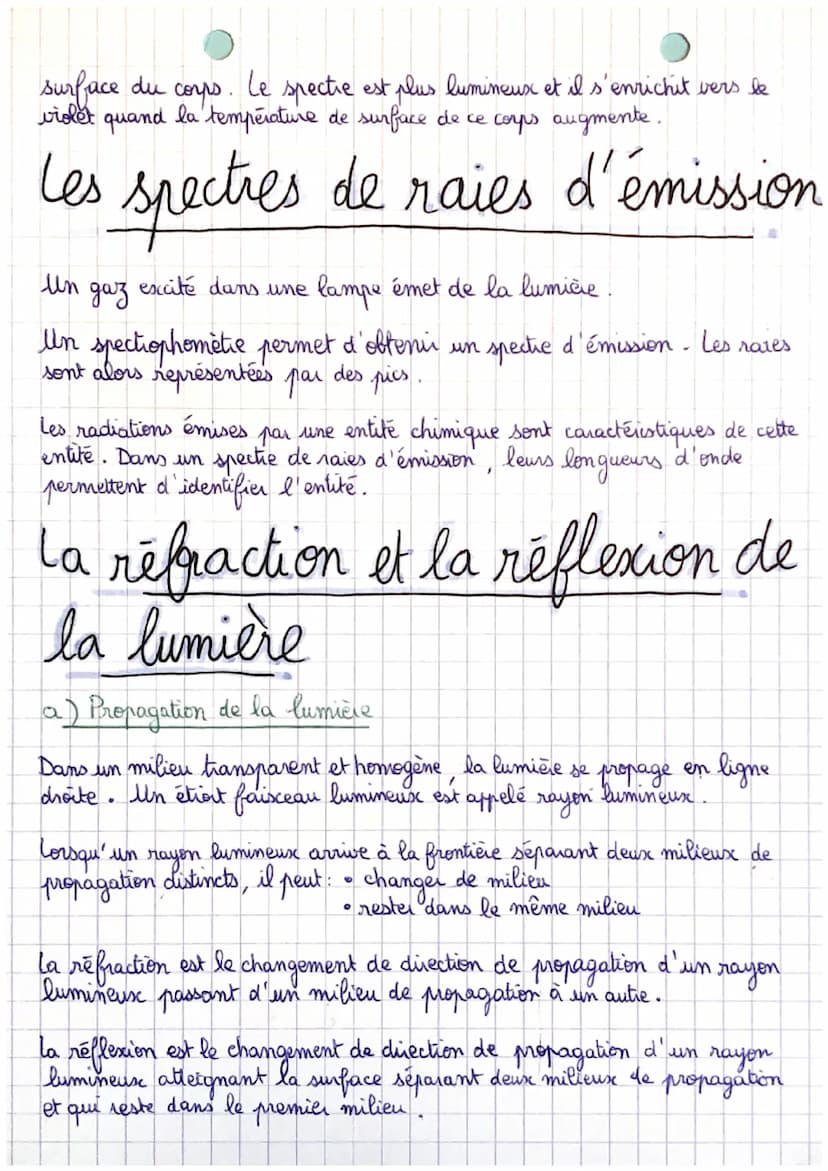 surface du corps. Le spectre est plus lumineux et il s'enrichit vers le
violet quand la température de surface de ce corps augmente.
Les spectres de raies d'émission
Un gaz excité dans une lampe émet de la lumière.
Un spectrophomètre permet d'obtenir un spectre d'émission. Les raies
sont alors représentées par des pics.
Les radiations émises par une entité chimique sont caractéristiques de cette
entité. Dans un spectre de raies d'émission, leurs longueurs d'onde
permettent d'identifier l'entité.
La réfraction et la réflexion de
la lumière
a) Propagation de la lumière
Dans un milieu transparent et homogène, la lumière se propage en ligne
droite. Un étroit faisceau lumineux est appelé rayon lumineux.
Lorsqu'un rayon lumineux arrive à la frontière séparant deux milieux de
propagation distincts, il peut : • changer de milieu
• rester dans le même milieu
La réfraction est le changement de direction de propagation d'un rayon
lumineux passant d'un milieu de propagation à un autre.
La réflexion est le changement de direction de propagation d'un rayon
lumineux atteignant la surface séparant deux milieux de propagation
et qui reste dans le premier milieu.